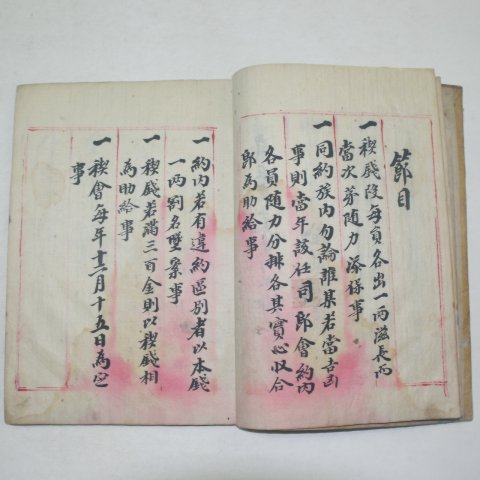 節目
一 稧錢段每員各出一兩滋長而
當次第隨力添保事
一 同約族內勿論誰某若當吉凶
事則當年該任司郎會約內
各員隨力分排各其實心収合
郎爲助給事
一 約內若有違約區別者以本錢
一兩割名墮案事
一 稧錢若滿三百金則以稧錢相
爲助給事
一 稧會每年十二月十五日爲定
事